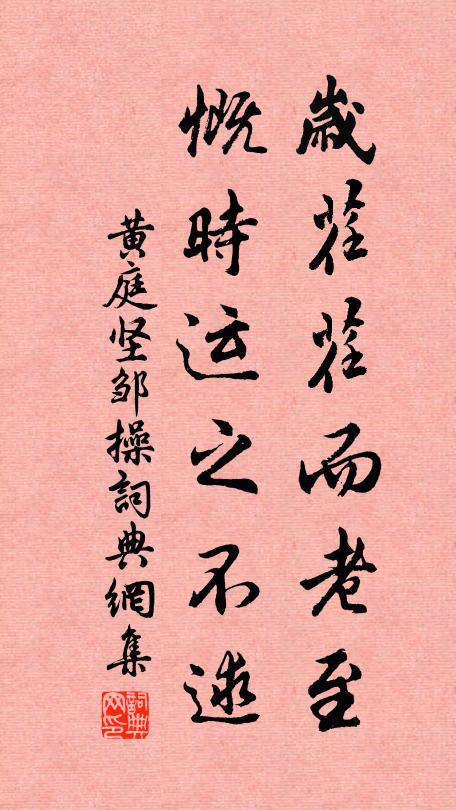 歲荏荏而老至
慨時运之不逮
黄庭坚邹操詞典網集
詞典网印